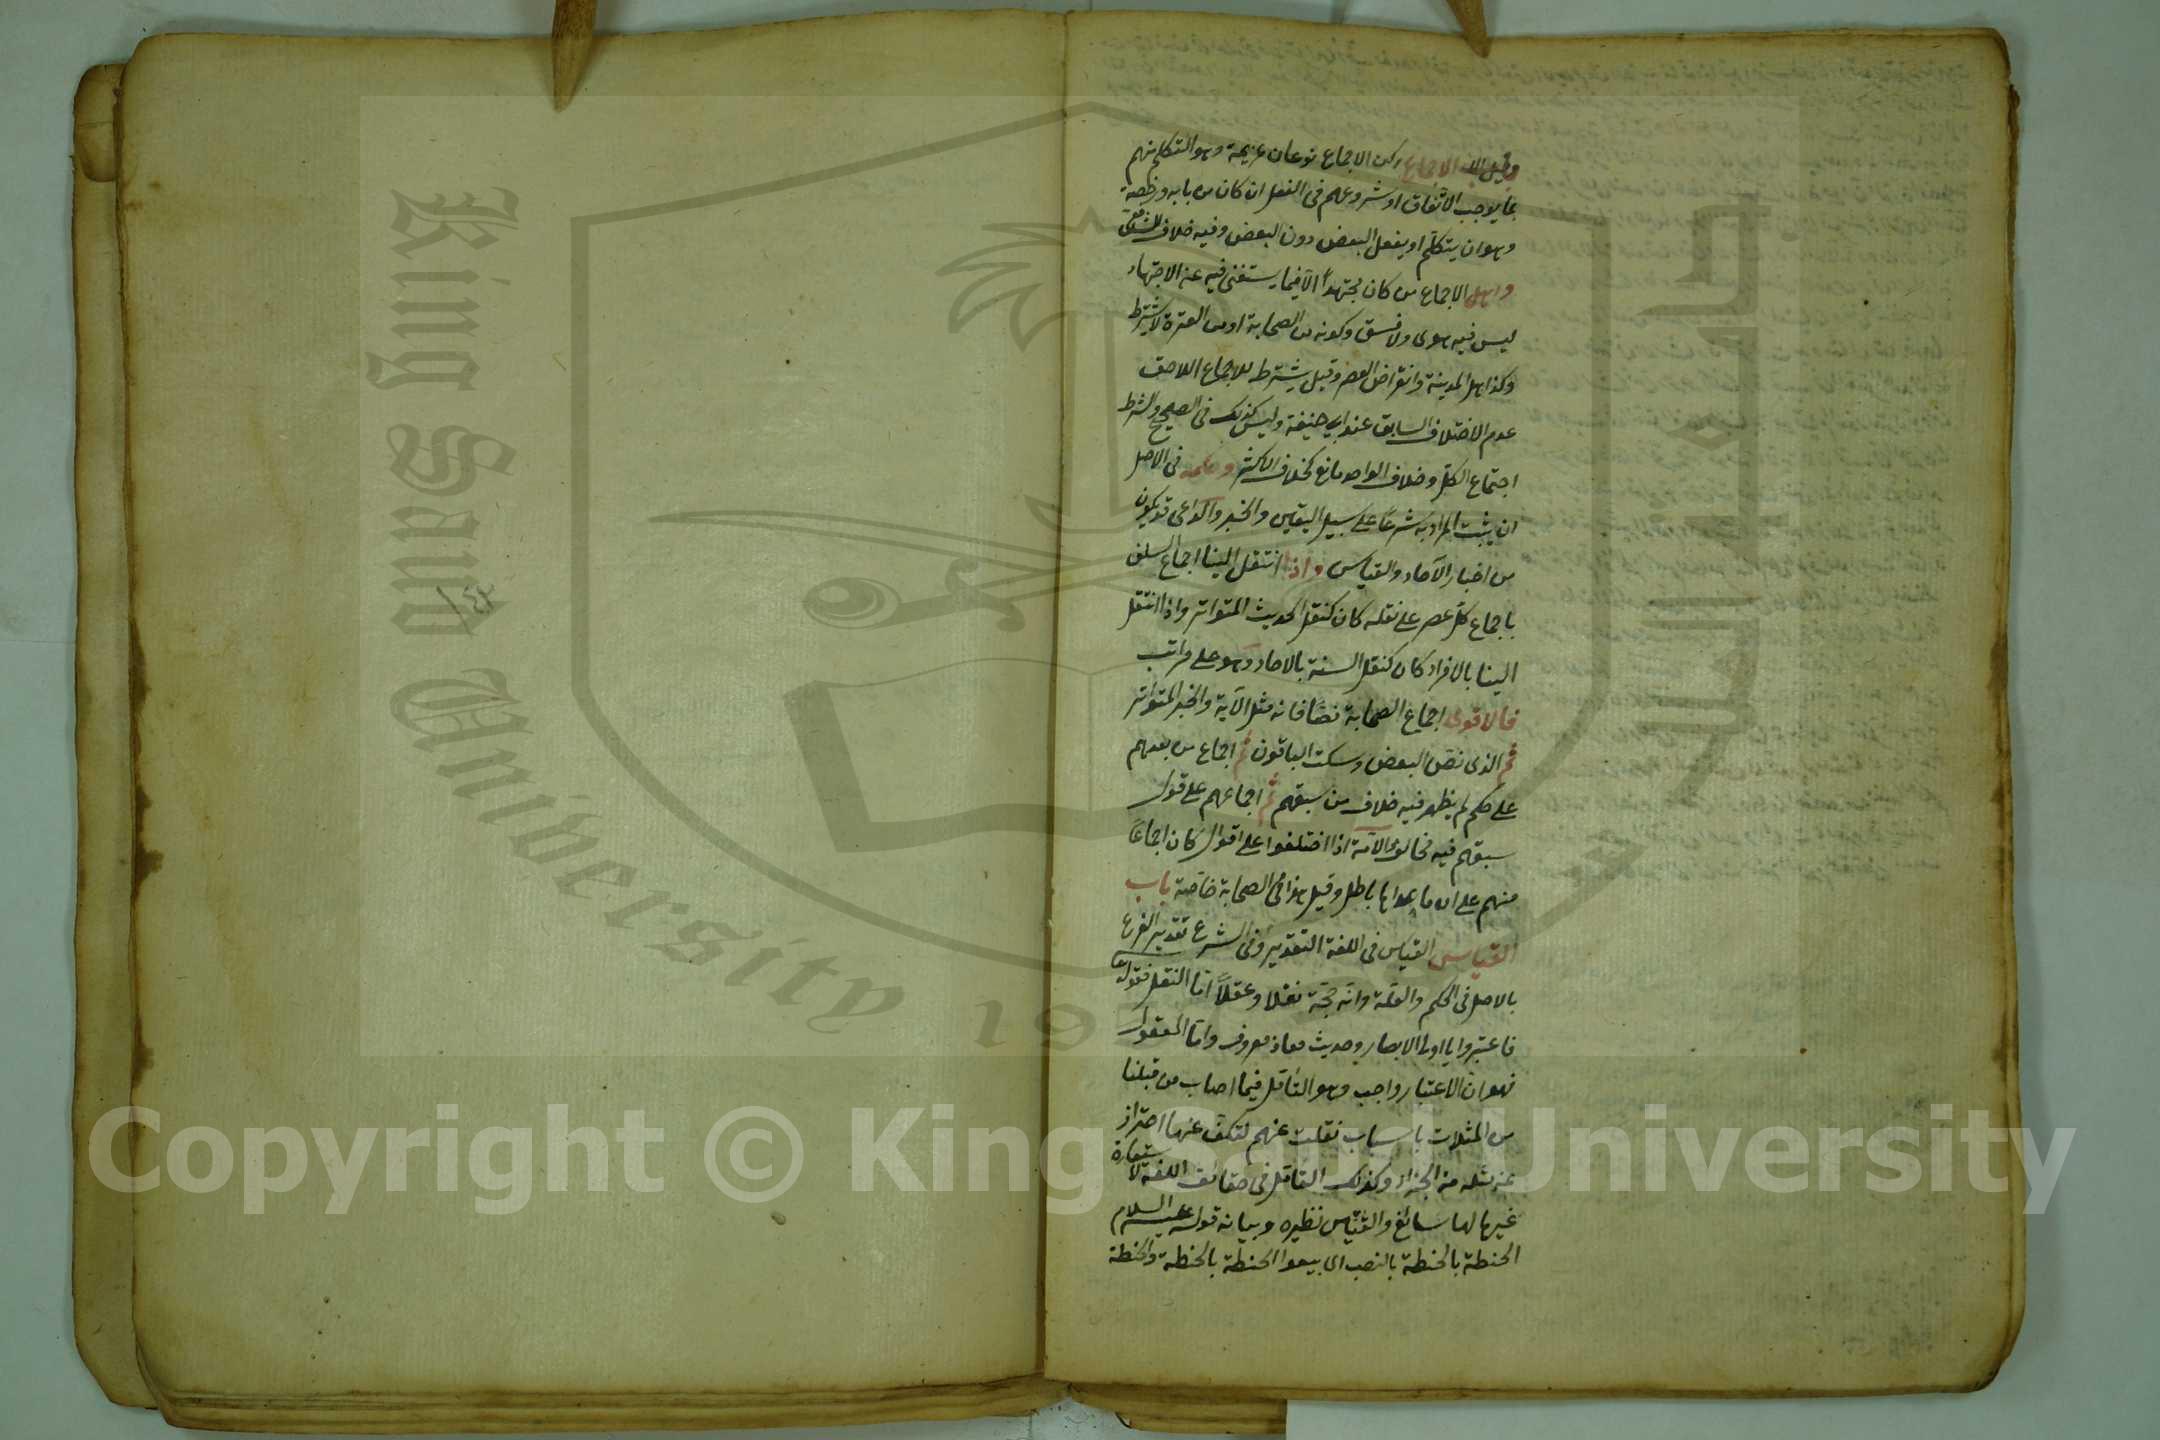 الاجماع ركن الاجماع نوعان عزيمة وهو التكلم منهم
بما يوجب الاتفاق او شروعهم فى الفعل ان كان من بابه ورخصة
وهو ان يتكلم او يفعل البعض دون البعض وفيه خلاف للشافعى
واهل الاجماع من كان مجتهداً الا فيما يستغنى فيه عن الاجتهاد
ليس فيه هوى ولا فسق وكونه من الصحابة او من العترة لا يشترط
وكذا اهل المدينة وانقراض العصر وقيل يشترط للاجماع اللاحق
عدم الاختلاف السابق عند ابي حنيفة وليس كذلك فى الصحيح والشرط
اجتماع الكل وخلاف الواحد مانع كخلاف الاكثر وحكمه فى الاصل
ان يثبت المراد به شرعاً على سبيل اليقين والخبر والداعى قد يكون
من اخبار الآحاد والقياس واذا انتقل الينا اجماع السلف
باجماع كل عصر على نقله كان كنقل الحديث المتواتر واذا انتقل
الينا بالافراد كان كنقل السنة بالاحاد وهو على مراتب
فالاقوى اجماع الصحابة نصاً فانه مثل الآية والخبر المتواتر
ثم الذى نص البعض وسكت الباقون ثم اجماع من بعدهم
على حكم لم يظهر فيه خلاف من سبقهم ثم اجماعهم على قول
سبقهم فيه مخالف والامة اذا اختلفوا على اقوال كان اجماعاً
منهم على ان ما عداها باطل وقيل هذا فى الصحابة خاصة باب
القياس القياس فى اللغة التقدير وفى الشرع تقدير الفرع
بالاصل فى الحكم والعلة وانه حجة نقلا وعقلاً اما النقل فقوله تعالى
فاعتبروا يا اولى الابصار وحديث معاذ معروف واما المعقول
فهو ان الاعتبار واجب وهو التأمل فيما اصاب من قبلنا
من المثلات باسباب نقلت عنهم لنكف عنها احتراز
عن مثله من الجزاء وكذلك التأمل فى حقائق اللغة لاستعارة
غيرها لها سائغ والقياس نظيره وبيانه قوله عليه السلام
الحنطة بالحنطة بالنصب اى بيعوا الحنطة بالحنطة والحنطة
King Saud University
19
Copyright © King Saud University